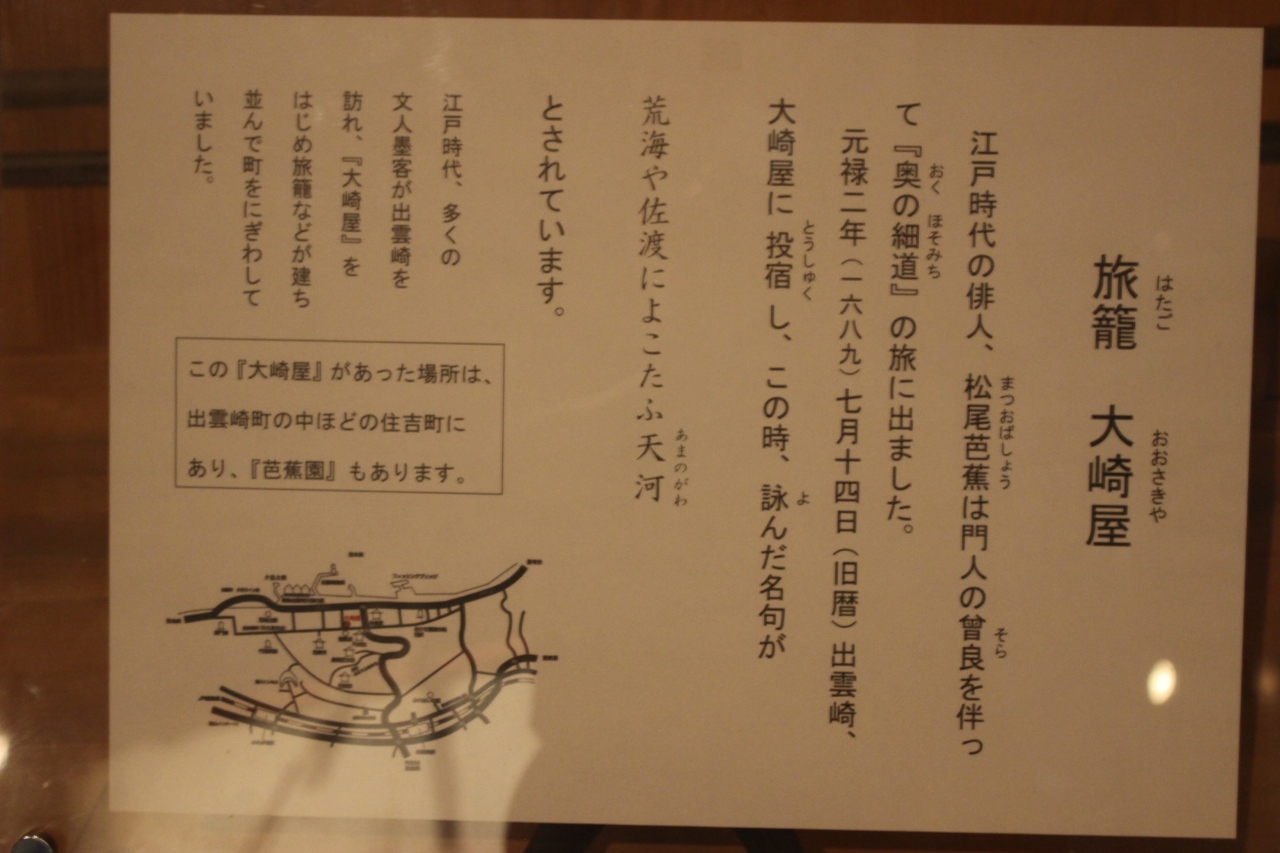 旅籠 大崎屋
はたご おおさきや
江戸時代の俳人、松尾芭蕉は門人の曾良を伴っ
まつおばしょう そら
て『奥の細道』の旅に出ました。
おく ほそみち
元禄二年(一六八九)七月十四日(旧暦)出雲崎、
大崎屋に投宿し、この時、詠んだ名句が
とうしゅく よ
荒海や佐渡によこたふ天河
あまのがわ
とされています。
江戸時代、多くの
文人墨客が出雲崎を
訪れ、『大崎屋』を
はじめ旅籠などが建ち
並んで町をにぎわして
いました。
この『大崎屋』があった場所は、
出雲崎町の中ほどの住吉町に
あり、『芭蕉園』もあります。